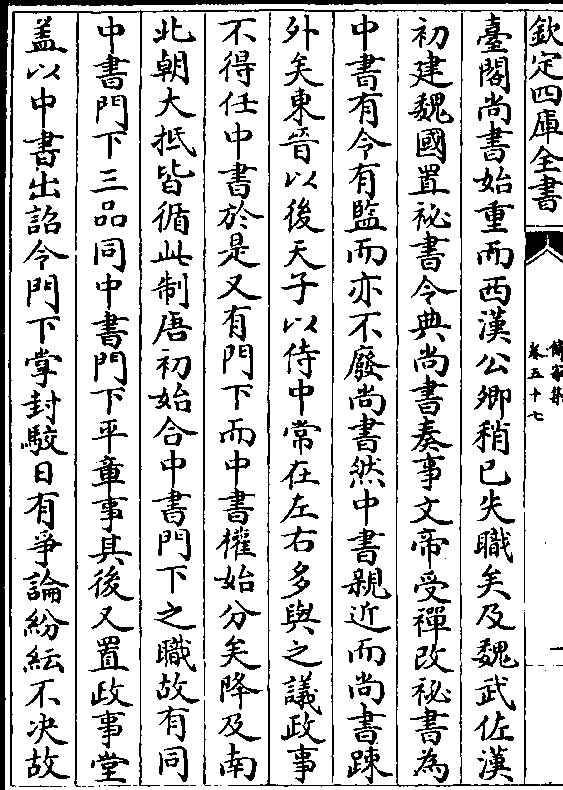 欽定四庫全書
卷五十七
一
臺閣尚書始重而西漢公卿稍已失職矣及魏武佐漢
初建魏國置祕書令典尚書奏事文帝受禪改祕書為
中書有令有監而亦不廢尚書然中書親近而尚書踈
外矣東晉以後天子以侍中常在左右多與之議政事
不得任中書於是又有門下而中書權始分矣降及南
北朝大抵皆循此制唐初始合中書門下之職故有同
中書門下三品同中書門下平章事其後又置政事堂
盖以中書出詔令門下掌封駮日有爭論紛紜不决故